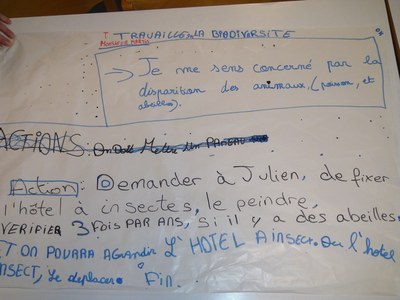 T TRAVAILLE LA BIODIVERSITÉ
→ Je me sens concerné par la
disparition des animaux. (poisson, et
abeilles).
ACTIONS: On doit Mettre un PANEAU
Action: Demander à Julien, de fixer
l'hôtel à insectes, le peindre,
VERIFIER 3 FOIS PAR ANS, si il y a des abeilles.
ET ON POURRA AGrandir L'HOTEL A insect. Ou l'hotel
INSECT, le deplacer. Fin.